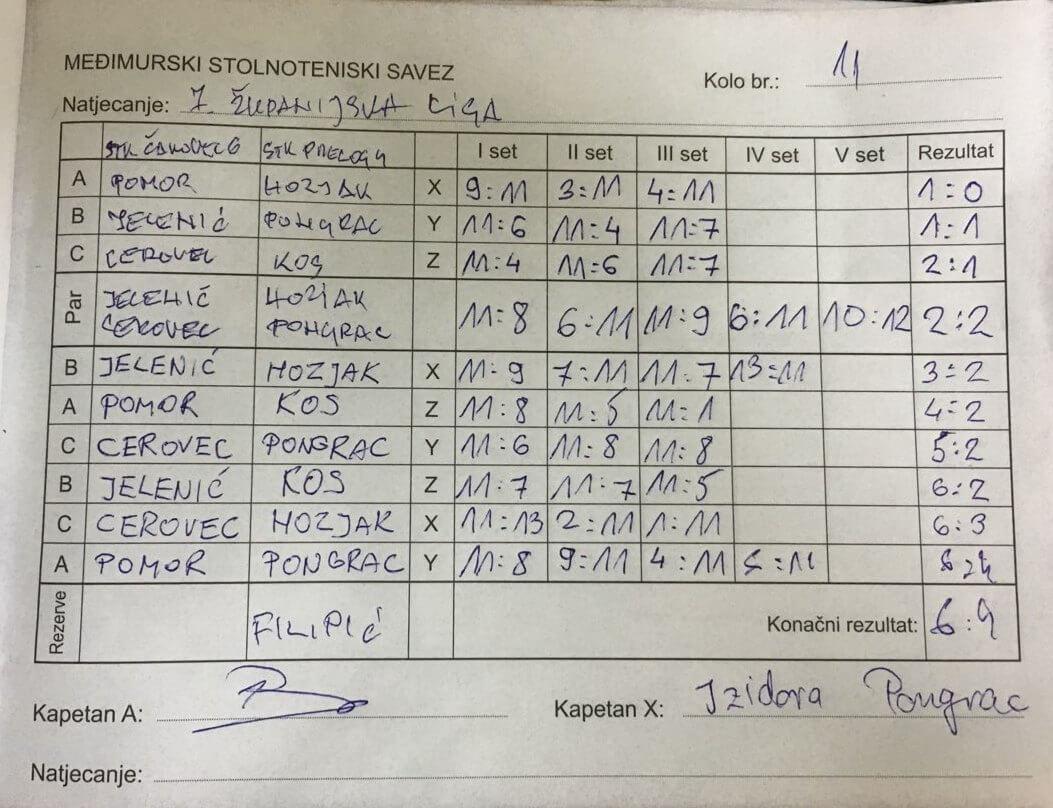 MEĐIMURSKI STOLNOTENISKI SAVEZ
Kolo br.: 11
Natjecanje: 1. ŽUPANIJSKA LIGA
STK ČAKOVEC 6 STK PRELOG 4 I set II set III set IV set V set Rezultat
A POMOR HOZJAK X 9:11 3:11 4:11 1:0
B JELENIĆ PONGRAC Y 11:6 11:4 11:7 1:1
C CEROVEC KOS Z 11:4 11:6 11:7 2:1
Par JELENIĆ HOZJAK
CEROVEC PONGRAC 11:8 6:11 11:9 6:11 10:12 2:2
B JELENIĆ HOZJAK X 11:9 7:11 11:7 13:11 3:2
A POMOR KOS Z 11:8 11:5 11:1 4:2
C CEROVEC PONGRAC Y 11:6 11:8 11:8 5:2
B JELENIĆ KOS Z 11:7 11:7 11:5 6:2
C CEROVEC HOZJAK X 11:13 2:11 1:11 6:3
A POMOR PONGRAC Y 11:8 9:11 4:11
Rezerve FILIPIĆ Konačni rezultat: 6:4
Kapetan A: Kapetan X: Izidora Pongrac
Natjecanje: